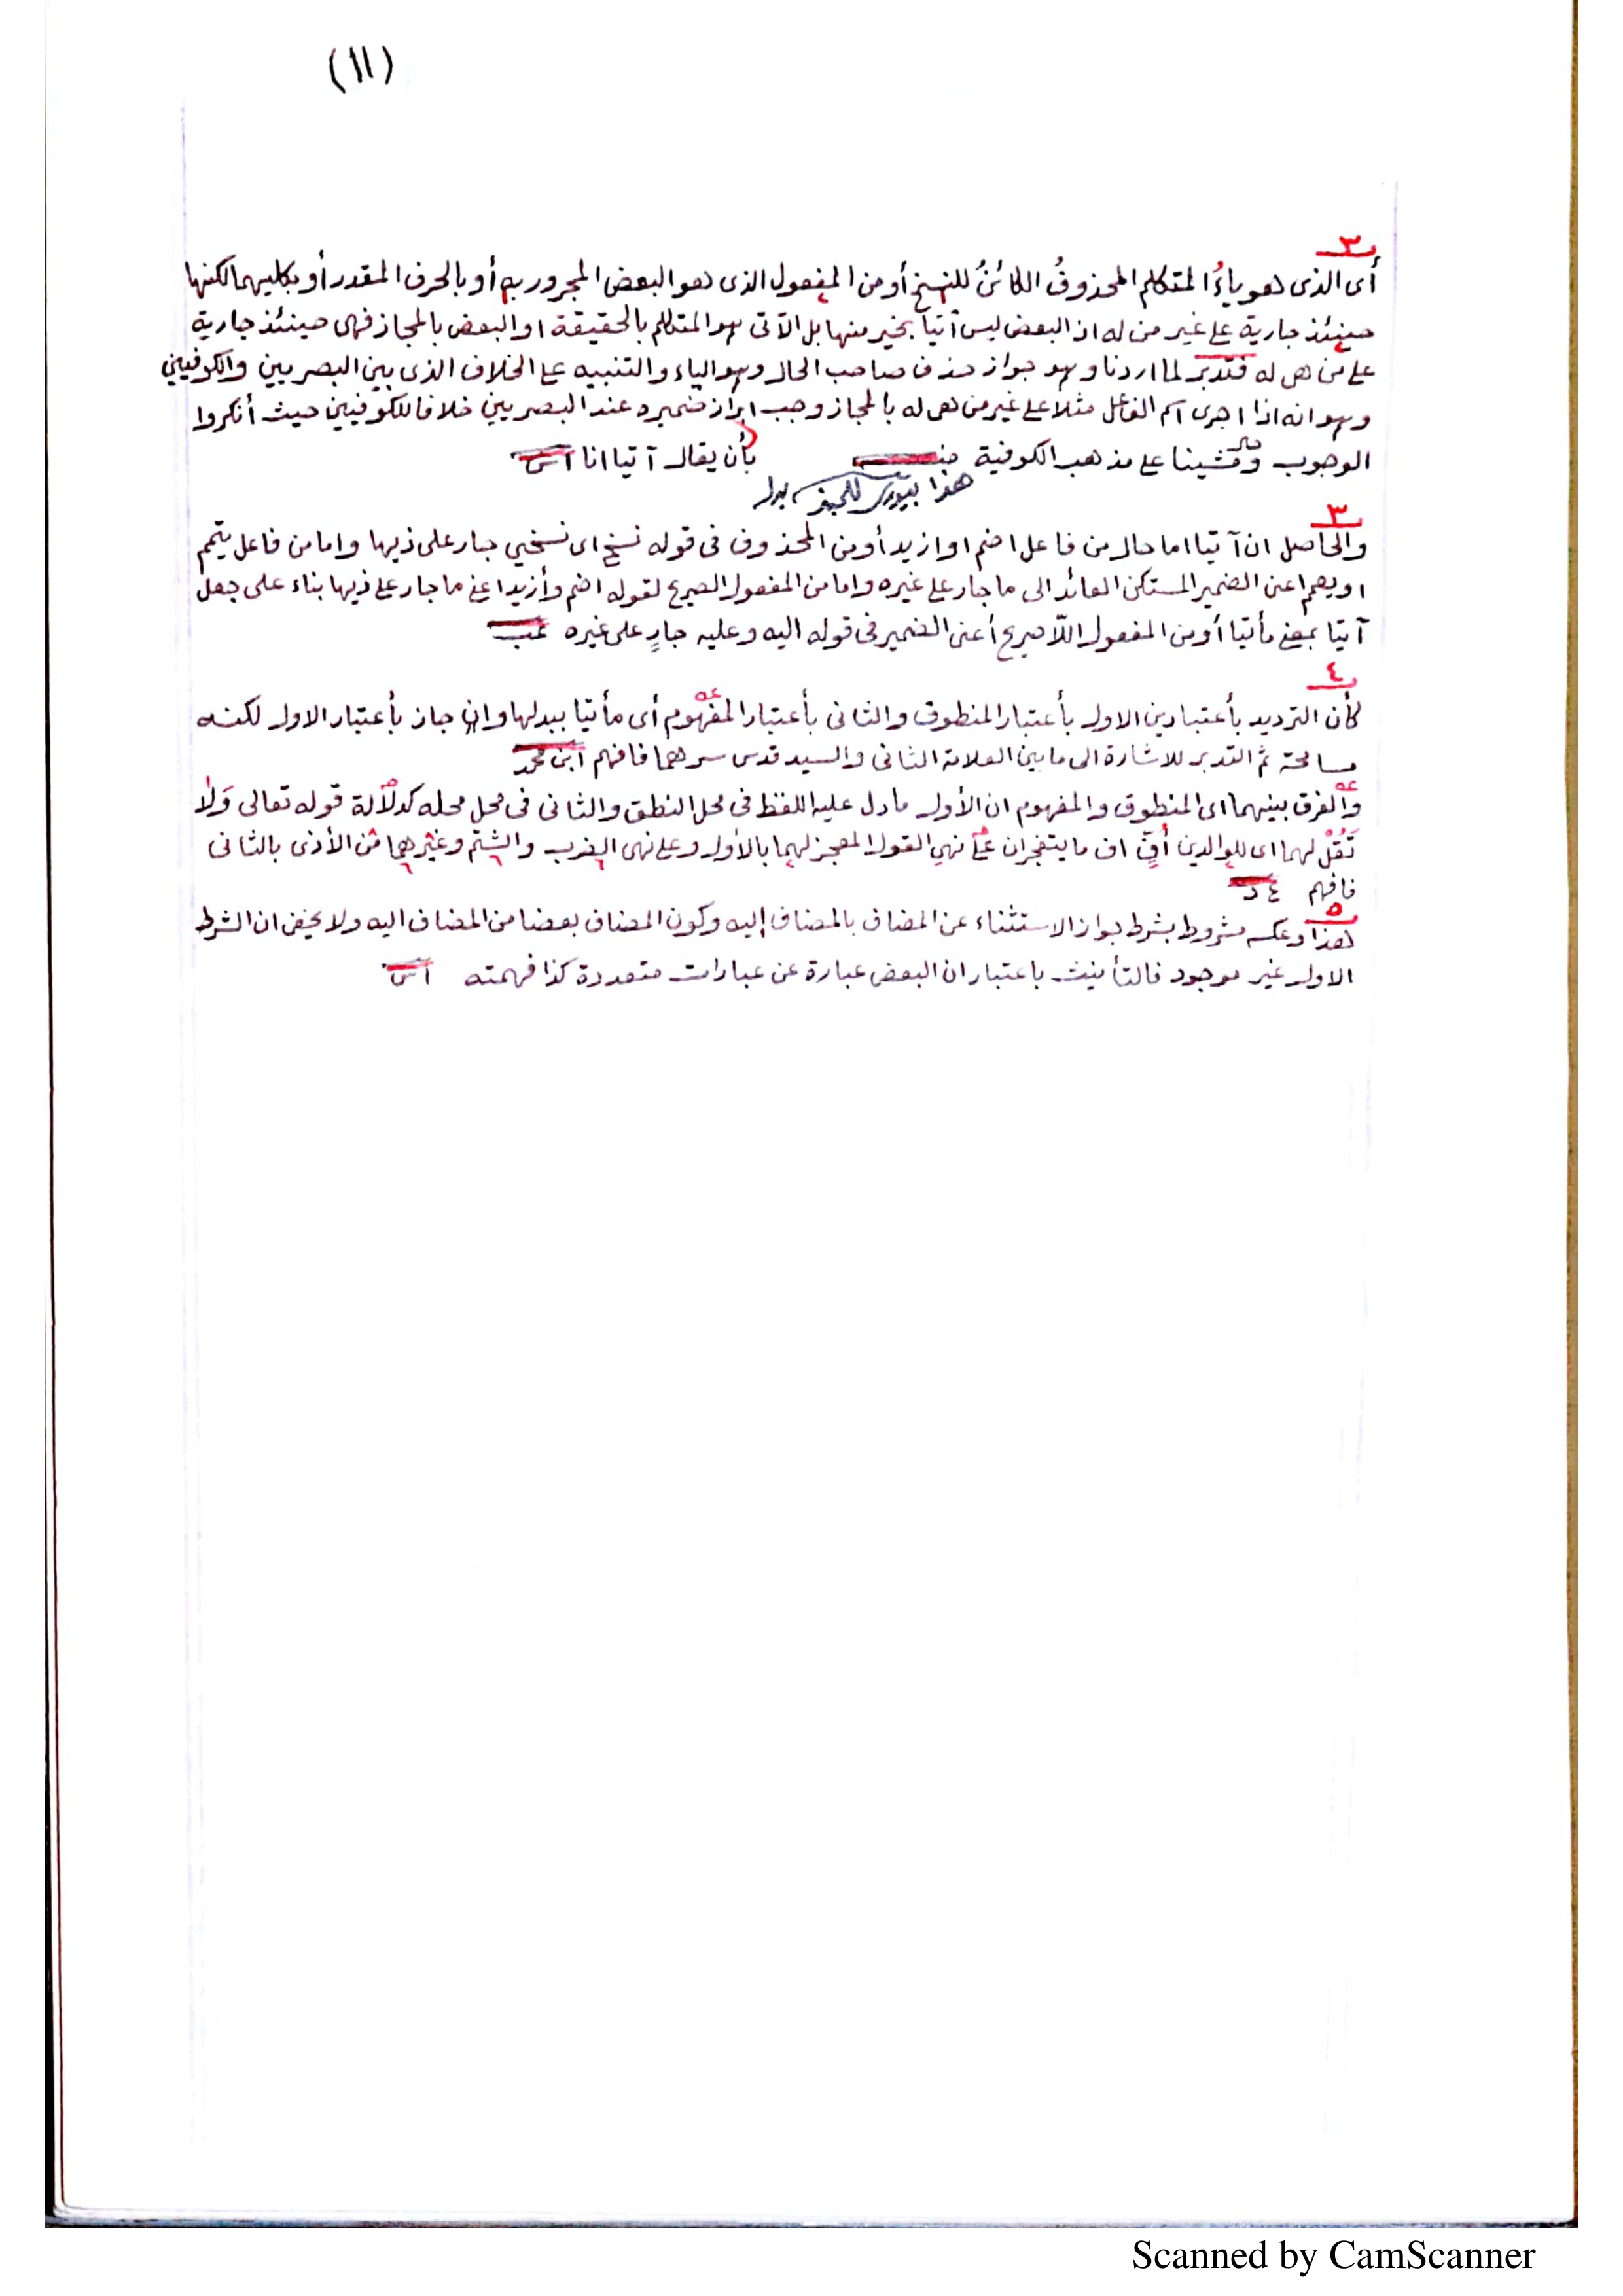 (١١)
٣
أى الذى هو ياءُ المتكلم المحذوفُ الكائنُ للنسخ أو من المفعول الذى هو البعض المجرور به أو بالحرف المقدر أو بكليهما لكنها
حينئذ جارية على غير من له اذ البعض ليس آتيا بخير منها بل الآتى هو المتكلم بالحقيقة او البعض بالمجاز فهى حينئذ جارية
على من هى له فتدبر لما اردنا وهو جواز حذف صاحب الحال وهو الياء والتنبيه على الخلاف الذى بين البصريين والكوفيين
وهو انه اذا اجرى اسم الفاعل مثلا على غير من هى له بالمجاز وجب ابراز ضميره عند البصريين خلافا للكوفيين حيث أنكروا
الوجوب ومشينا على مذهب الكوفية بأن يقال آتيا انا
هذا
٣
والحاصل ان آتيا اما حال من فاعل اضم او ازيد أو من المحذوف فى قوله نسخ اى نسخي جار على ذيها واما من فاعل يتمم
او يعمم اعنى الضمير المستكن العائد الى ما جار على غيره واما من المفعول الصريح لقوله اضم وأزيد اعنى ما جار على ذيها بناء على جعل
آتيا بمعنى مأتيا أو من المفعول اللّا صريح أعنى الضمير فى قوله اليه وعليه جارٍ على غيره
٤
كأن الترديد بأعتبارين الاول بأعتبار المنطوق والثانى بأعتبار المفهوم أى مأتيا ببدلها وان جاز بأعتبار الاول لكنه
مسامحة ثم التدبر للاشارة الى ما بين العلامة الثانى والسيد قدس سرهما فافهم ابن محمد
والفرق بينهما اى المنطوق والمفهوم ان الأول ما دل عليه اللفظ فى محل النطق والثانى فى محل محله كدلالة قوله تعالى وَلا
تَقُلْ لهما اى للوالدين أُفٍّ اى ما يتفجران على نهي القول المعجز لهما بالأول وعلى نهى الضرب والشتم وغيرهما من الأذى بالثانى
فافهم
٥
هذا وعكسه مشروط بشرط جواز الاستثناء عن المضاف بالمضاف إليه وكون المضاف بعضا من المضاف اليه ولا يخفى ان الشرط
الاول غير موجود فالتأنيث باعتبار ان البعض عبارة عن عبارات متعددة كذا فهمته
Scanned by CamScanner